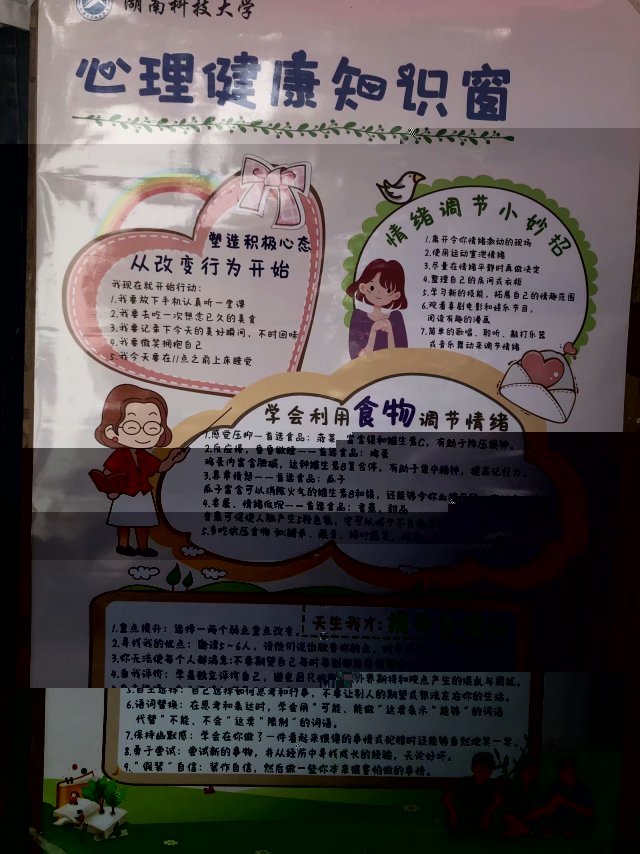 湖南科技大学
心理健康知识窗
塑造积极心态
从改变行为开始
我现在就开始行动:
1.我要放下手机认真听一堂课
2.我要去吃一次想念已久的美食
3.我要记录下今天的美好瞬间,不时回味
4.我要微笑拥抱自己
5.我今天要在11点之前上床睡觉
情绪调节小妙招
1.离开令你情绪激动的现场
2.使用运动宣泄情绪
3.尽量在情绪平静时再做决定
4.整理自己的房间或衣柜
5.学习新的技能,拓展自己的情趣范围
6.观看喜剧电影和娱乐节目,
阅读有趣的漫画
7.简单的歌唱、聆听、敲打乐器
或音乐舞动来调节情绪
学会利用食物调节情绪
1.感觉压抑—首选食品:菠菜 富含镁和维生素C,有助于降压提神。
2.反应慢,昏昏欲睡——首选食品:鸡蛋
鸡蛋内富含胆碱,这种维生素B复合体,有助于集中精神,提高记忆力。
3.异常愤怒——首选食品:瓜子
瓜子富含可以消除火气的维生素B和镁,还能够令你血
4.零星、情绪低沉——首选食品:香蕉,甜品
香蕉可促使人脑产生5羟色胺,
5.多吃抗压食物 如:糙米、燕麦、
天生我才:
1.重点提升:选择一两个弱点重点改变
2.寻找我的优点:邀请5~6人,请他们说出欣赏你的点,
3.你无法使每个人都满意:不要期望自己每时每刻都
4.自我评价:学着独立评价自己,避免因 外界期待和观点产生的混乱与困扰。
5.自主选择:自己选择如何思考和行事,不要让别人的期望或想法左右你的生活。
6.语词替换:在思考和表达时,学会用"可能、能做"这类表示"能够"的词语
代替"不能、不会"这类"限制"的词语。
7.保持幽默感:学会在你做了一件看起来很糟的事情或犯错时还能够自然地笑一笑。
8.勇于尝试:尝试新的事物,并从经历中寻找成长的经验,无论好坏。
9."假装"自信:装作自信,然后做一些你本来很害怕做的事情。